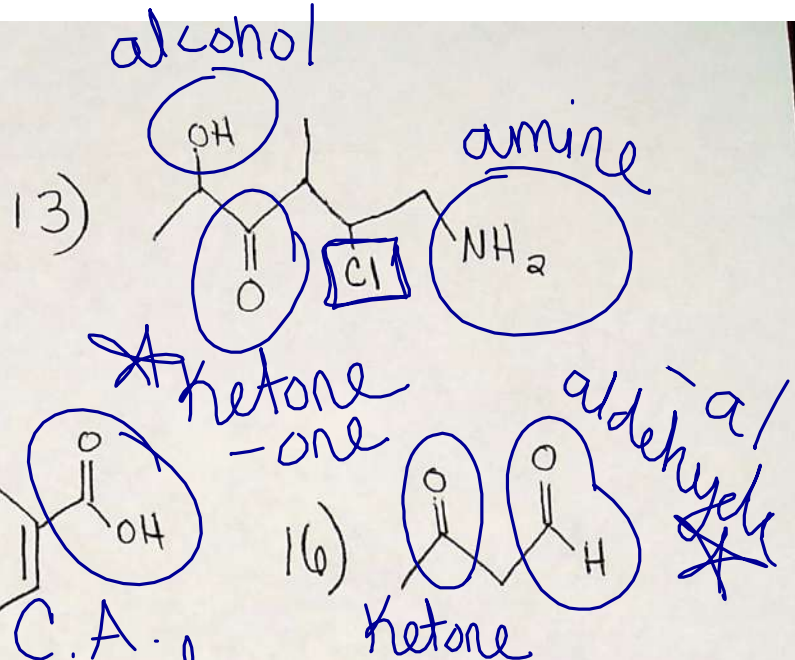 alcohol
OH
amine
13)
NH2
Cl
O
*Ketone
-one
aldehyde
-al
O
OH
16)
O
O
H
C.A.
Ketone